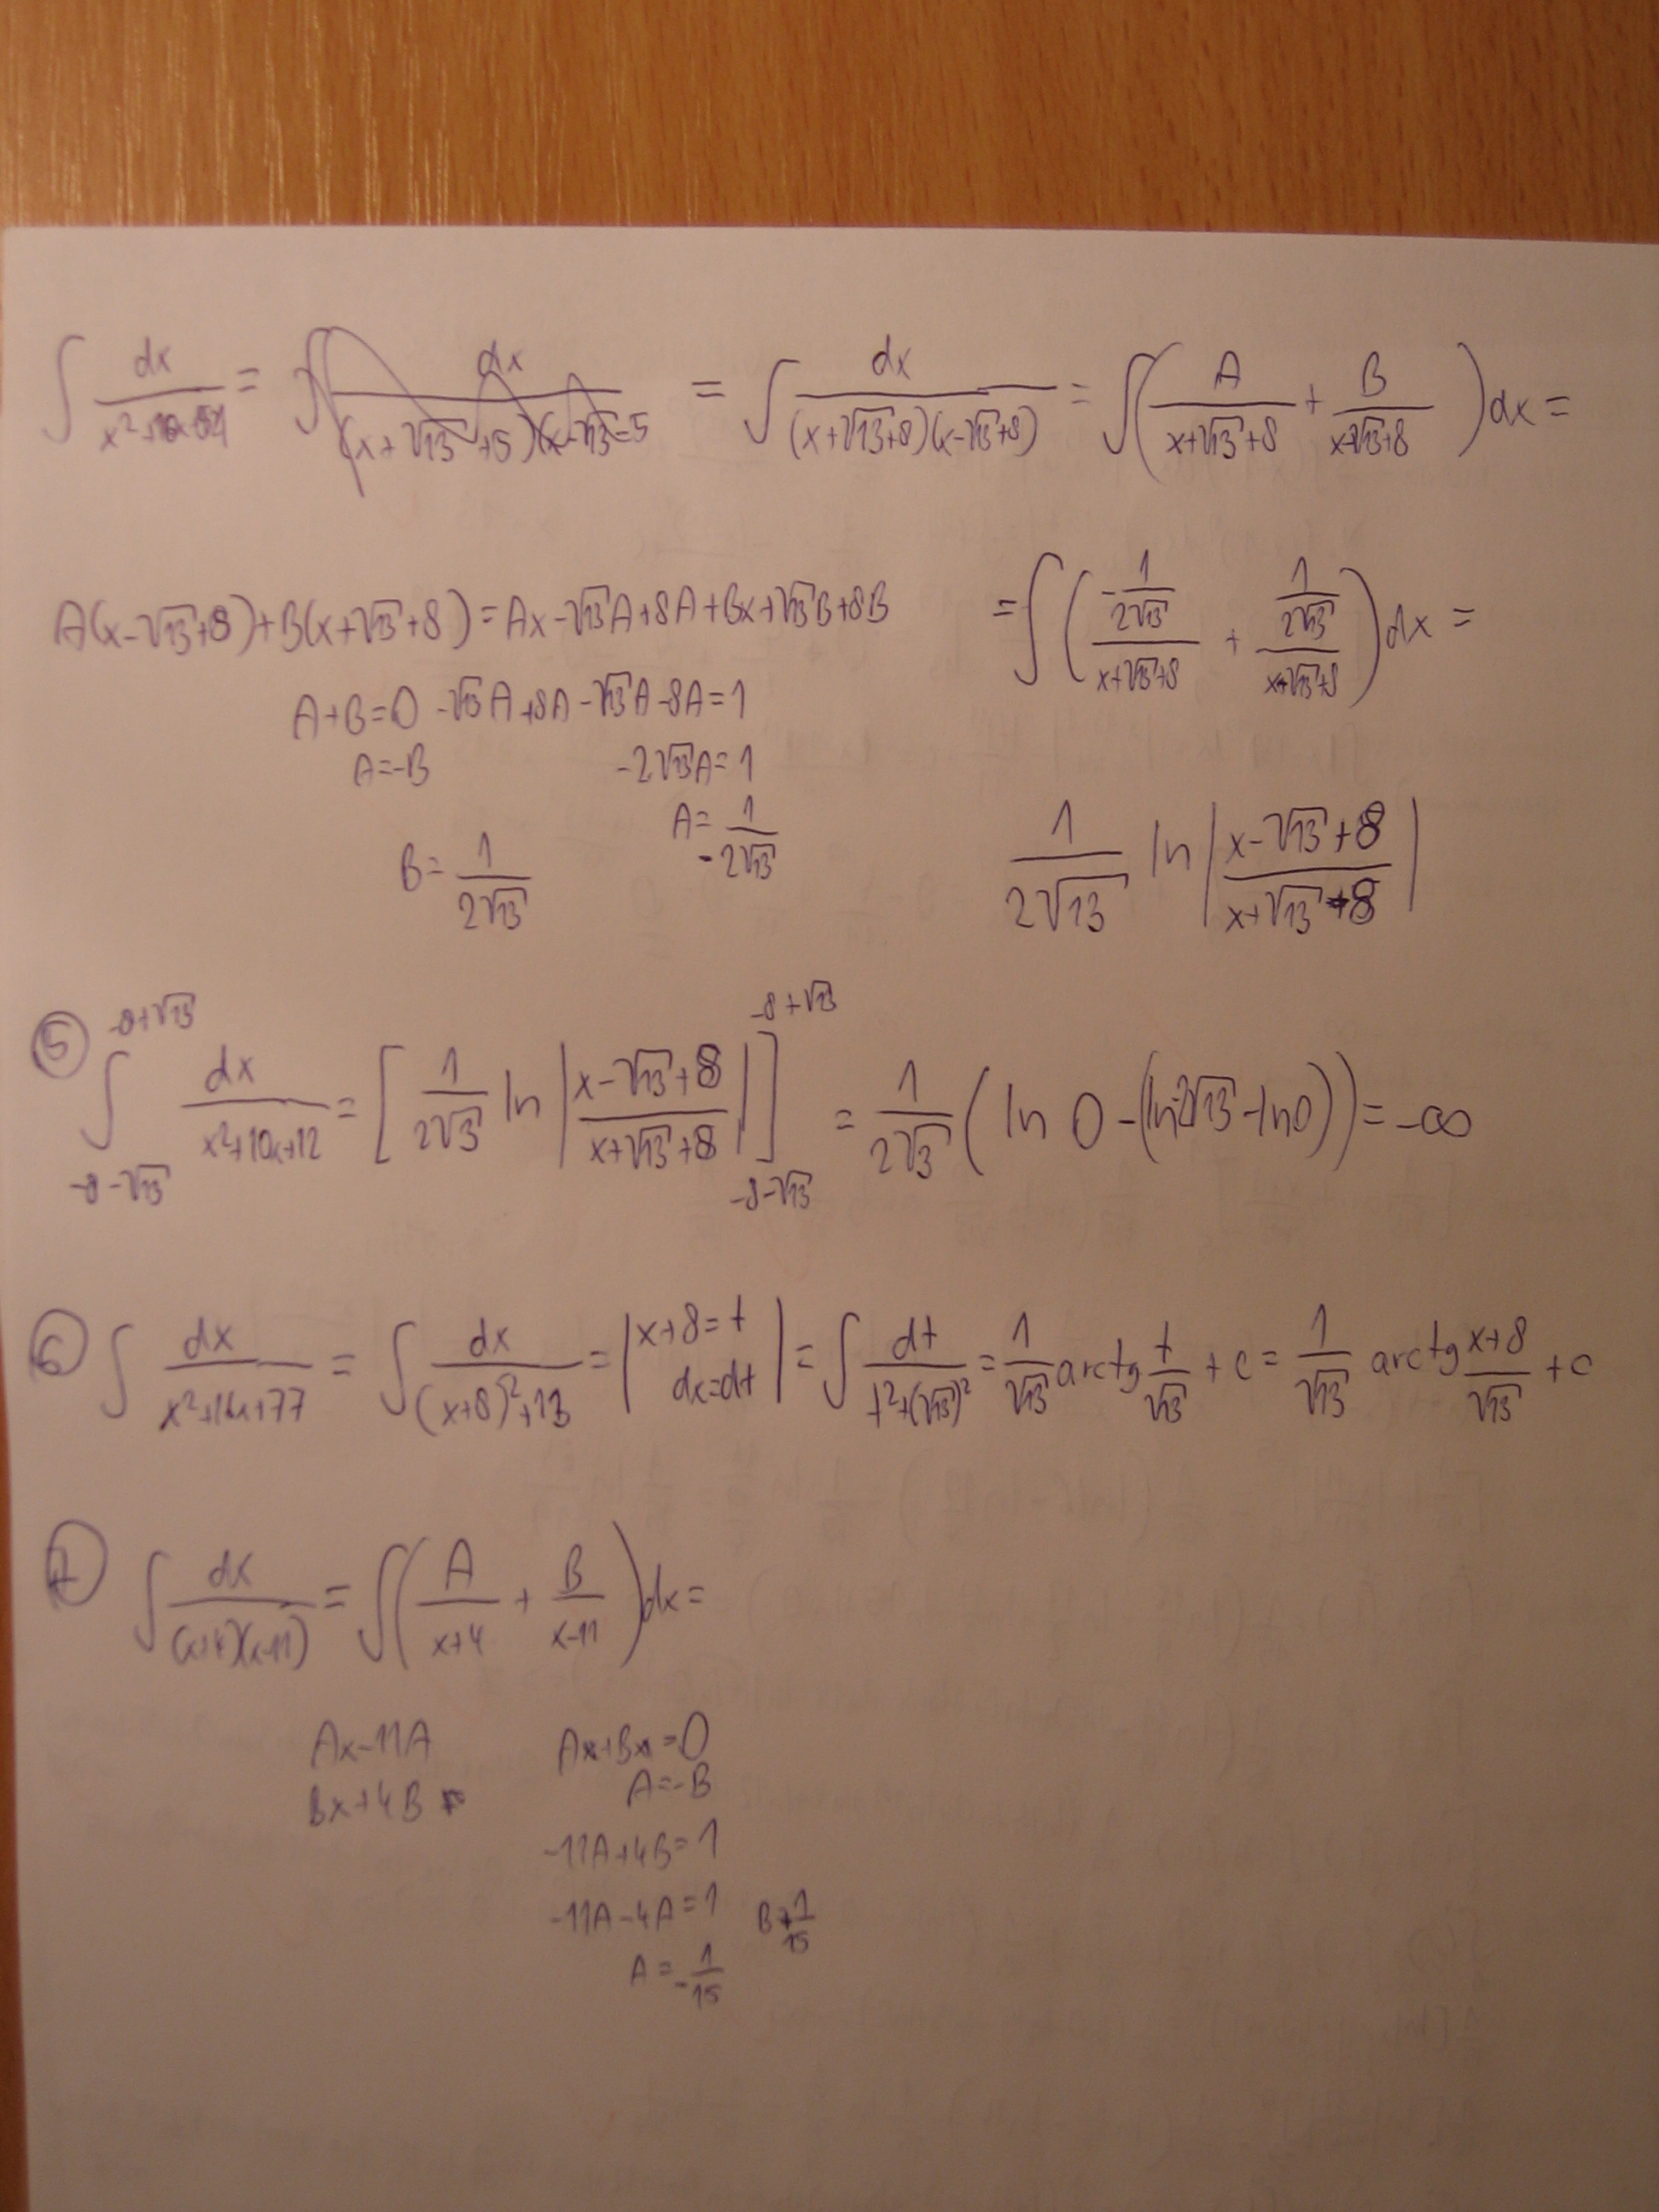 ∫ dx/(x²+16x+51) = = ∫ dx/((x+√13+8)(x-√13+8)) = ∫(A/(x+√13+8) + B/(x-√13+8))dx =
A(x-√13+8)+B(x+√13+8)=Ax-√13A+8A+Bx+√13B+8B
=∫(-1/(2√13)/(x+√13+8) + 1/(2√13)/(x-√13+8))dx =
A+B=0 -√13A+8A-√13A-8A=1
A=-B -2√13A=1
B=1/(2√13) A=1/(-2√13)
1/(2√13) ln|(x-√13+8)/(x+√13+8)|
⑤ ∫_{-8-√13}^{-8+√13} dx/(x²+10x+12) = [1/(2√13) ln|(x-√13+8)/(x+√13+8)|]_{-8-√13}^{-8+√13} = 1/(2√13) (ln 0-(ln-2√13-ln0))=-∞
⑥ ∫ dx/(x²+16x+77) = ∫ dx/((x+8)²+13) = |x+8=t dx=dt| = ∫ dt/(t²+(√13)²) = 1/√13 arctg t/√13 + c = 1/√13 arctg (x+8)/√13 + c
⑦ ∫ dx/((x+4)(x-11)) = ∫(A/(x+4) + B/(x-11))dx =
Ax-11A Ax+Bx=0
Bx+4B A=-B
-11A+4B=1
-11A-4A=1 B=1/15
A=-1/15